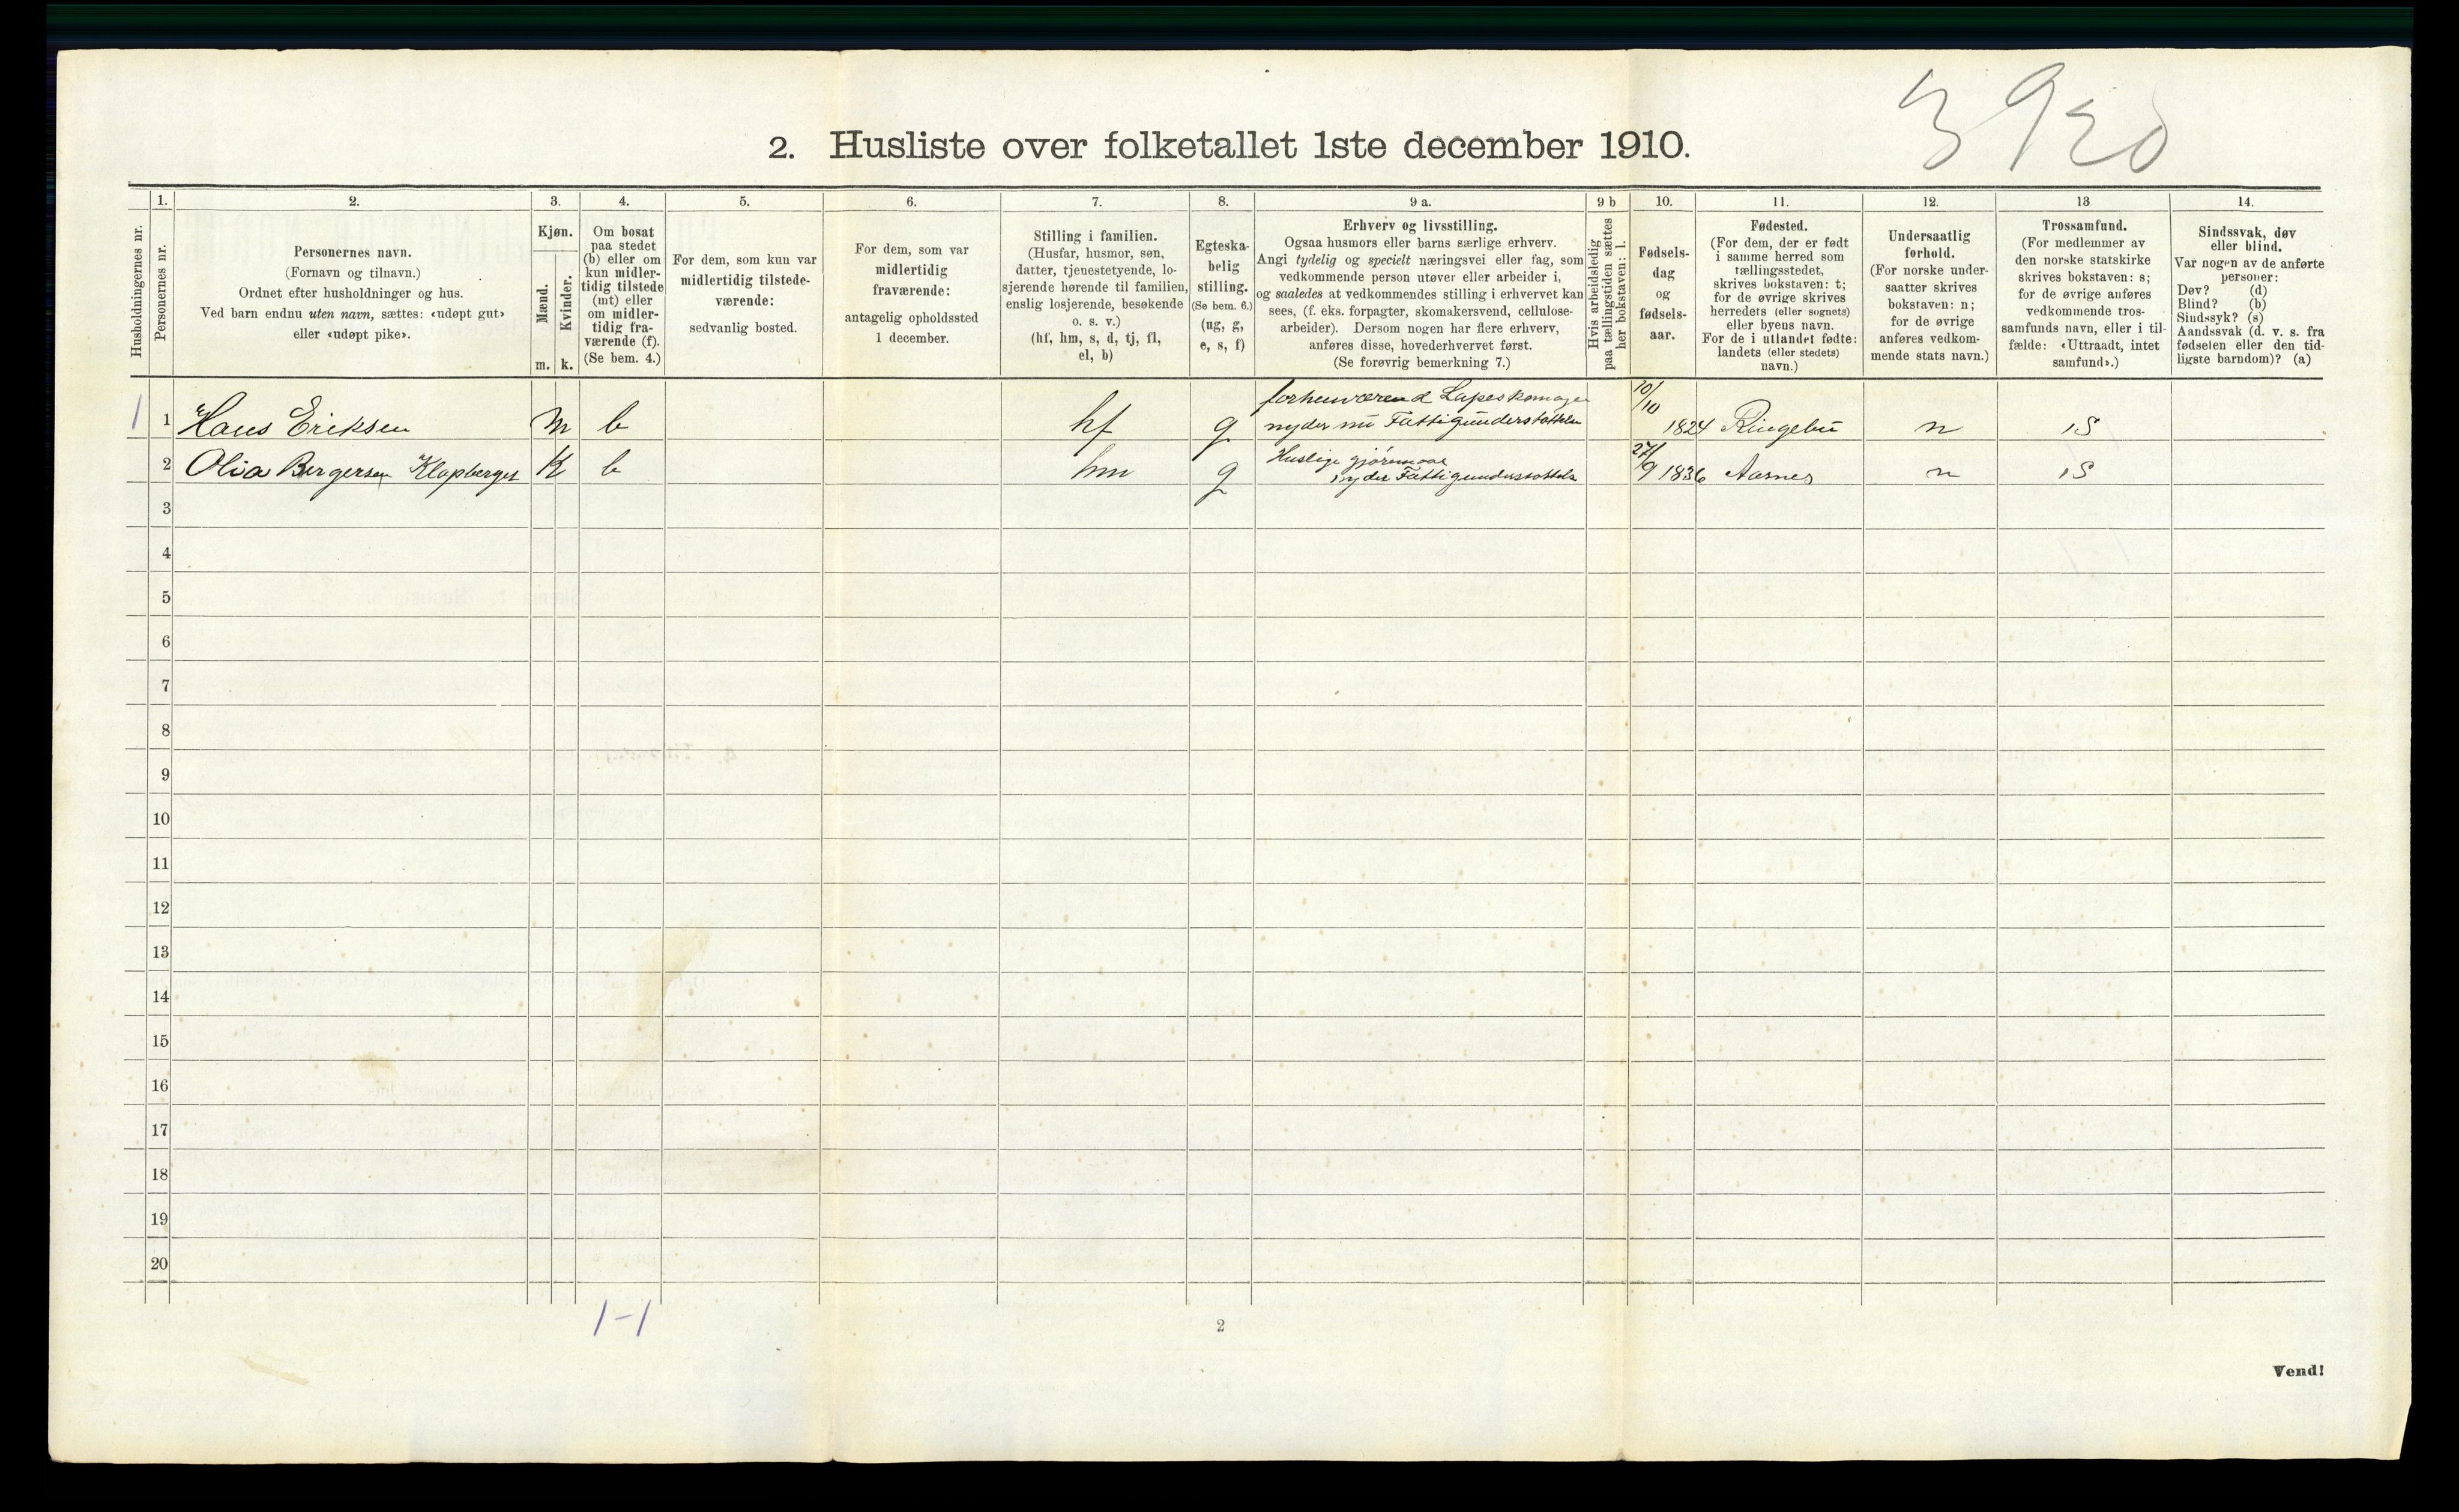 3920
2. Husliste over folketallet 1ste december 1910.
Husholdningernes nr.
1.
Personernes nr.
2.
Personernes navn.
(Fornavn og tilnavn.)
Ordnet efter husholdninger og hus.
Ved barn endnu uten navn, sættes: «udøpt gut»
eller «udøpt pike».
3.
Kjøn.
Mænd.
Kvinder.
m. k.
4.
Om bosat
paa stedet
(b) eller om
kun midler-
tidig tilstede
(mt) eller
om midler-
tidig fra-
værende (f).
(Se bem. 4.)
5.
For dem, som kun var
midlertidig tilstede-
værende:
sedvanlig bosted.
6.
For dem, som var
midlertidig
fraværende:
antagelig opholdssted
1 december.
7.
Stilling i familien.
(Husfar, husmor, søn,
datter, tjenestetyende, lo-
sjerende hørende til familien,
enslig losjerende, besøkende
o. s. v.)
(hf, hm, s, d, tj, fl,
el, b)
8.
Egteska-
belig
stilling.
(Se bem. 6.)
(ug, g,
e, s, f)
9 a.
Erhverv og livsstilling.
Ogsaa husmors eller barns særlige erhverv.
Angi tydelig og specielt næringsvei eller fag, som
vedkommende person utøver eller arbeider i,
og saaledes at vedkommendes stilling i erhvervet kan
sees, (f. eks. forpagter, skomakersvend, cellulose-
arbeider). Dersom nogen har flere erhverv,
anføres disse, hovederhvervet først.
(Se forøvrig bemerkning 7.)
9 b
Hvis arbeidsledig
paa tællingstiden sættes
her bokstaven: l.
10.
Fødsels-
dag
og
fødsels-
aar.
11.
Fødested.
(For dem, der er født
i samme herred som
tællingsstedet,
skrives bokstaven: t;
for de øvrige skrives
herredets (eller sognets)
eller byens navn.
For de i utlandet fødte:
landets (eller stedets)
navn.)
12.
Undersaatlig
forhold.
(For norske under-
saatter skrives
bokstaven: n;
for de øvrige
anføres vedkom-
mende stats navn.)
13
Trossamfund.
(For medlemmer av
den norske statskirke
skrives bokstaven: s;
for de øvrige anføres
vedkommende tros-
samfunds navn, eller i til-
fælde: «Uttraadt, intet
samfund».)
14.
Sindssvak, døv
eller blind.
Var nogen av de anførte
personer:
Døv? (d)
Blind? (b)
Sindssyk? (s)
Aandssvak (d. v. s. fra
fødselen eller den tid-
ligste barndom)? (a)
forhenværend Lapeskomager
1 1 Hans Eriksen m b hf g nyder nu Fattigunderstøttelse 10/10 1824 Ringebu n S
Huslige gjøremaal
2 Olia Bergersen Klopberget K b hm g nyder Fattigunderstøttelse 27/9 1836 Aasnes n S
3
4
5
6
7
8
9
10
11
12
13
14
15
16
17
18
19
20
1-1
2
Vend!